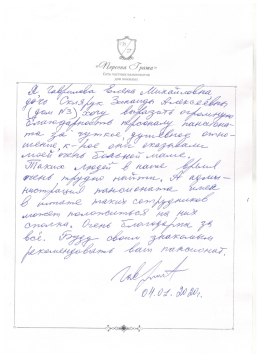 «Портал Грата»
Сеть частных пансионатов
для пожилых
Я Гаврилова Елена Михайловна
дочь Склярук Зинаида Алексеевны
(дом №3) хочу выразить огромную
благодарность персоналу пансиона-
та за чуткое, душевное отно-
шение, к-рое они оказывали
моей очень больной маме.
Таких людей в наше время
очень трудно найти. А админи-
страция пансионата имея
в штате таких сотрудников
может положиться на них
сполна. Очень благодарна за
всё. Буду своим знакомым
рекомендовать ваш пансионат.
04.01.2020г.